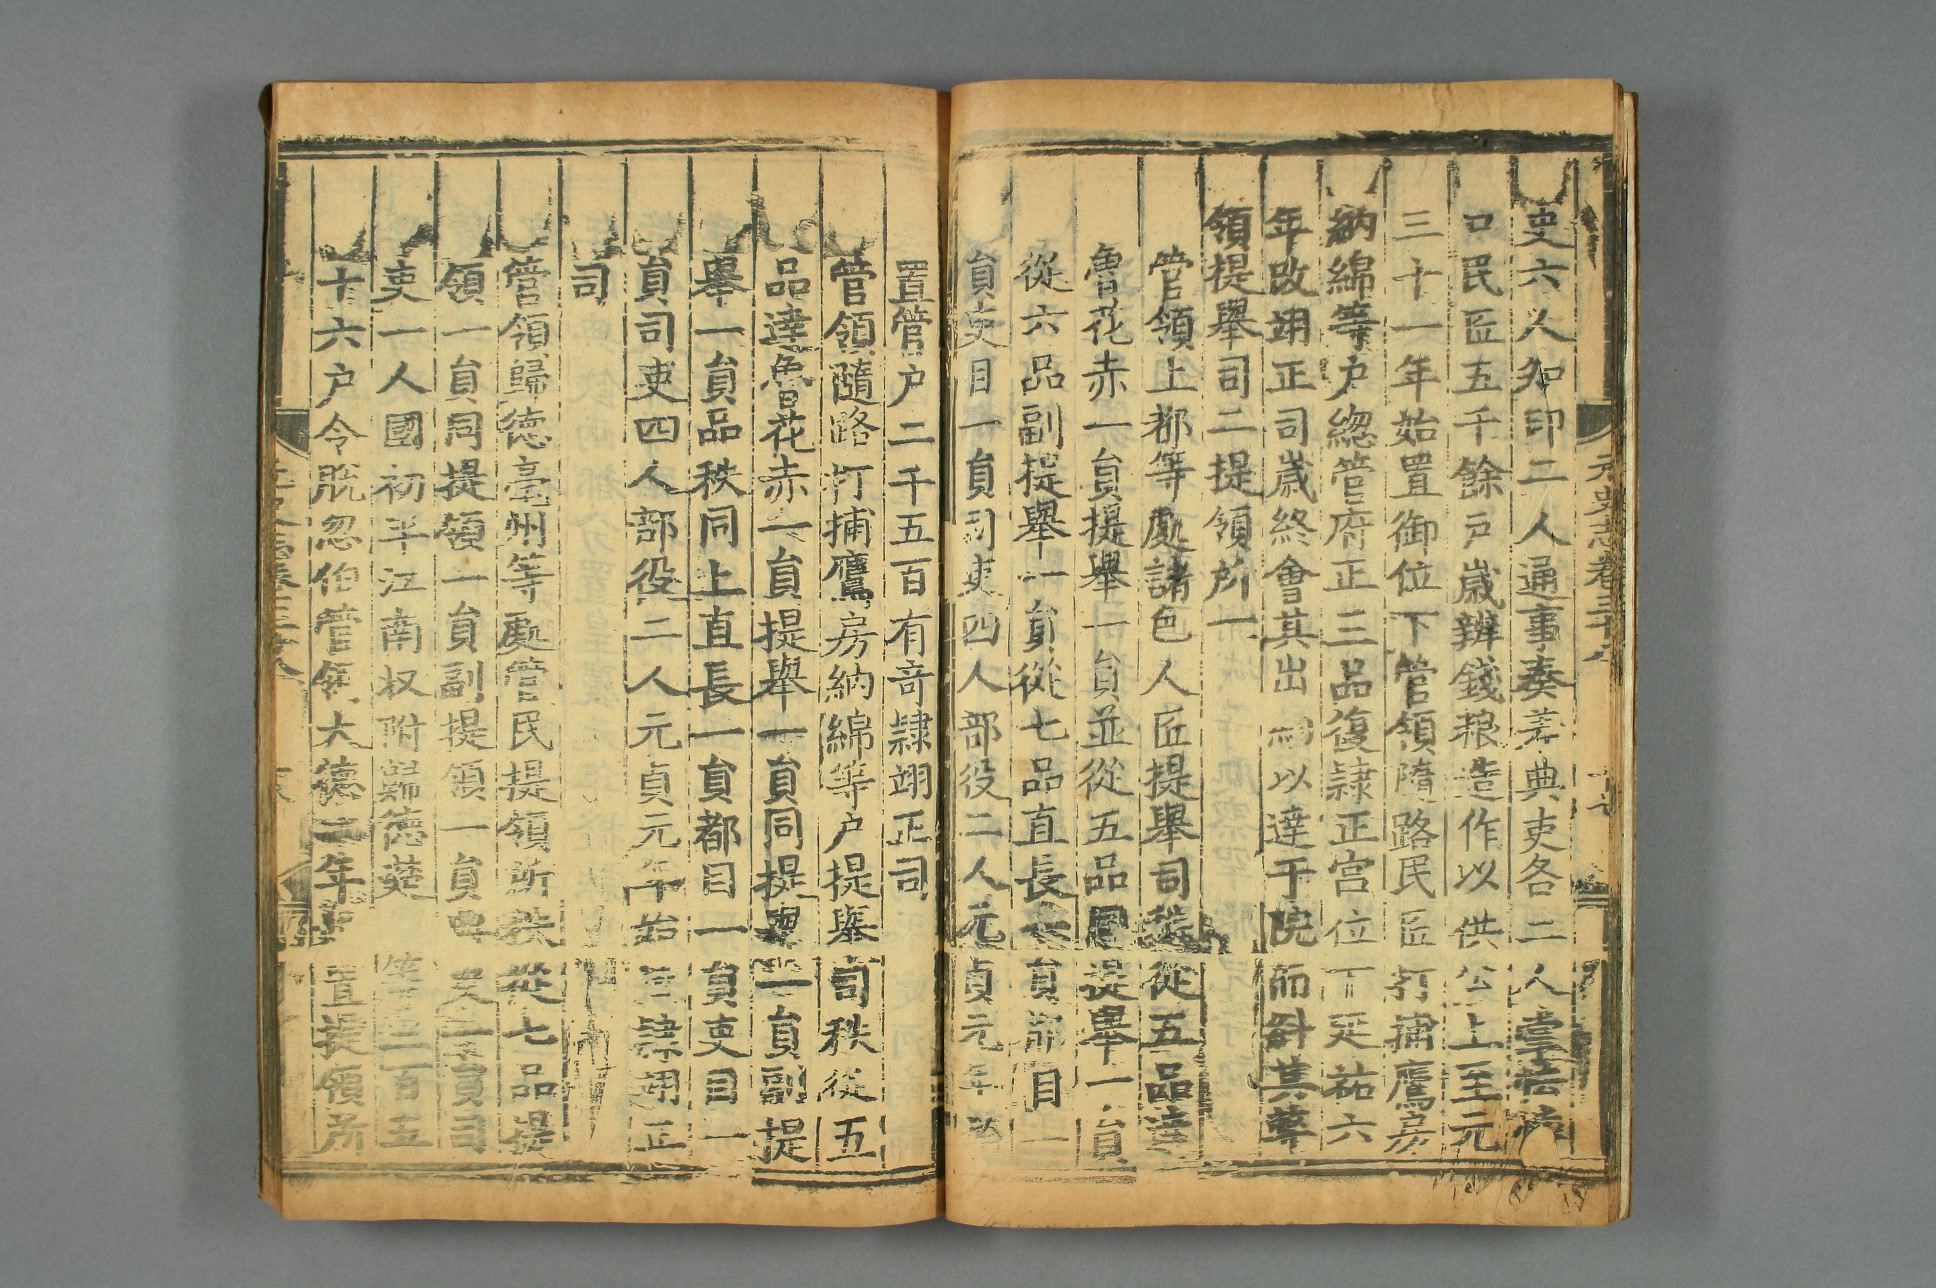 元史志卷三十八
吏六人知印二人通事奏差典吏各二人掌
口民匠五千餘户歲辨錢粮造作以供公上至元
三十一年始置御位下管領隨路民匠打捕鷹房
納綿等户緫管府正三品復隸正宫位下延祐六
年改翊正司歲終會其出納以達于院而糾其弊
領提舉司二提領所一
管領上都等處諸色人匠提舉司秩從五品達
魯花赤一員提舉一員並從五品同提舉一員
從六品副提舉一員從七品直長一員都目一
員吏目一員司吏四人部役二人元貞元年以
置管户二千五百有奇隸翊正司
管領隨路打捕鷹房納綿等户提舉司秩從五
品達魯花赤一員提舉一員同提舉一員副提
舉一員品秩同上直長一員都目一員吏目一
員司吏四人部役二人元貞元年始置隸翊正
司
管領歸德亳州等處管民提領所秩從七品提
領一員同提領一員副提領一員典史一員司
吏一人國初平江南收附歸德楚 等 一百五
十六户令脫忽伯管領大德二年 置提領所